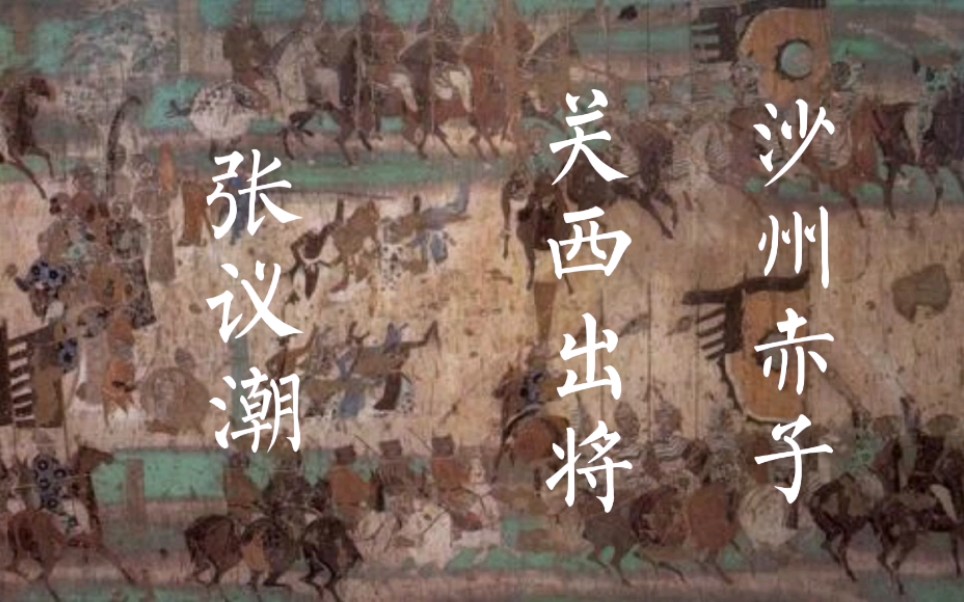 沙州赤子
关西出将
张议潮